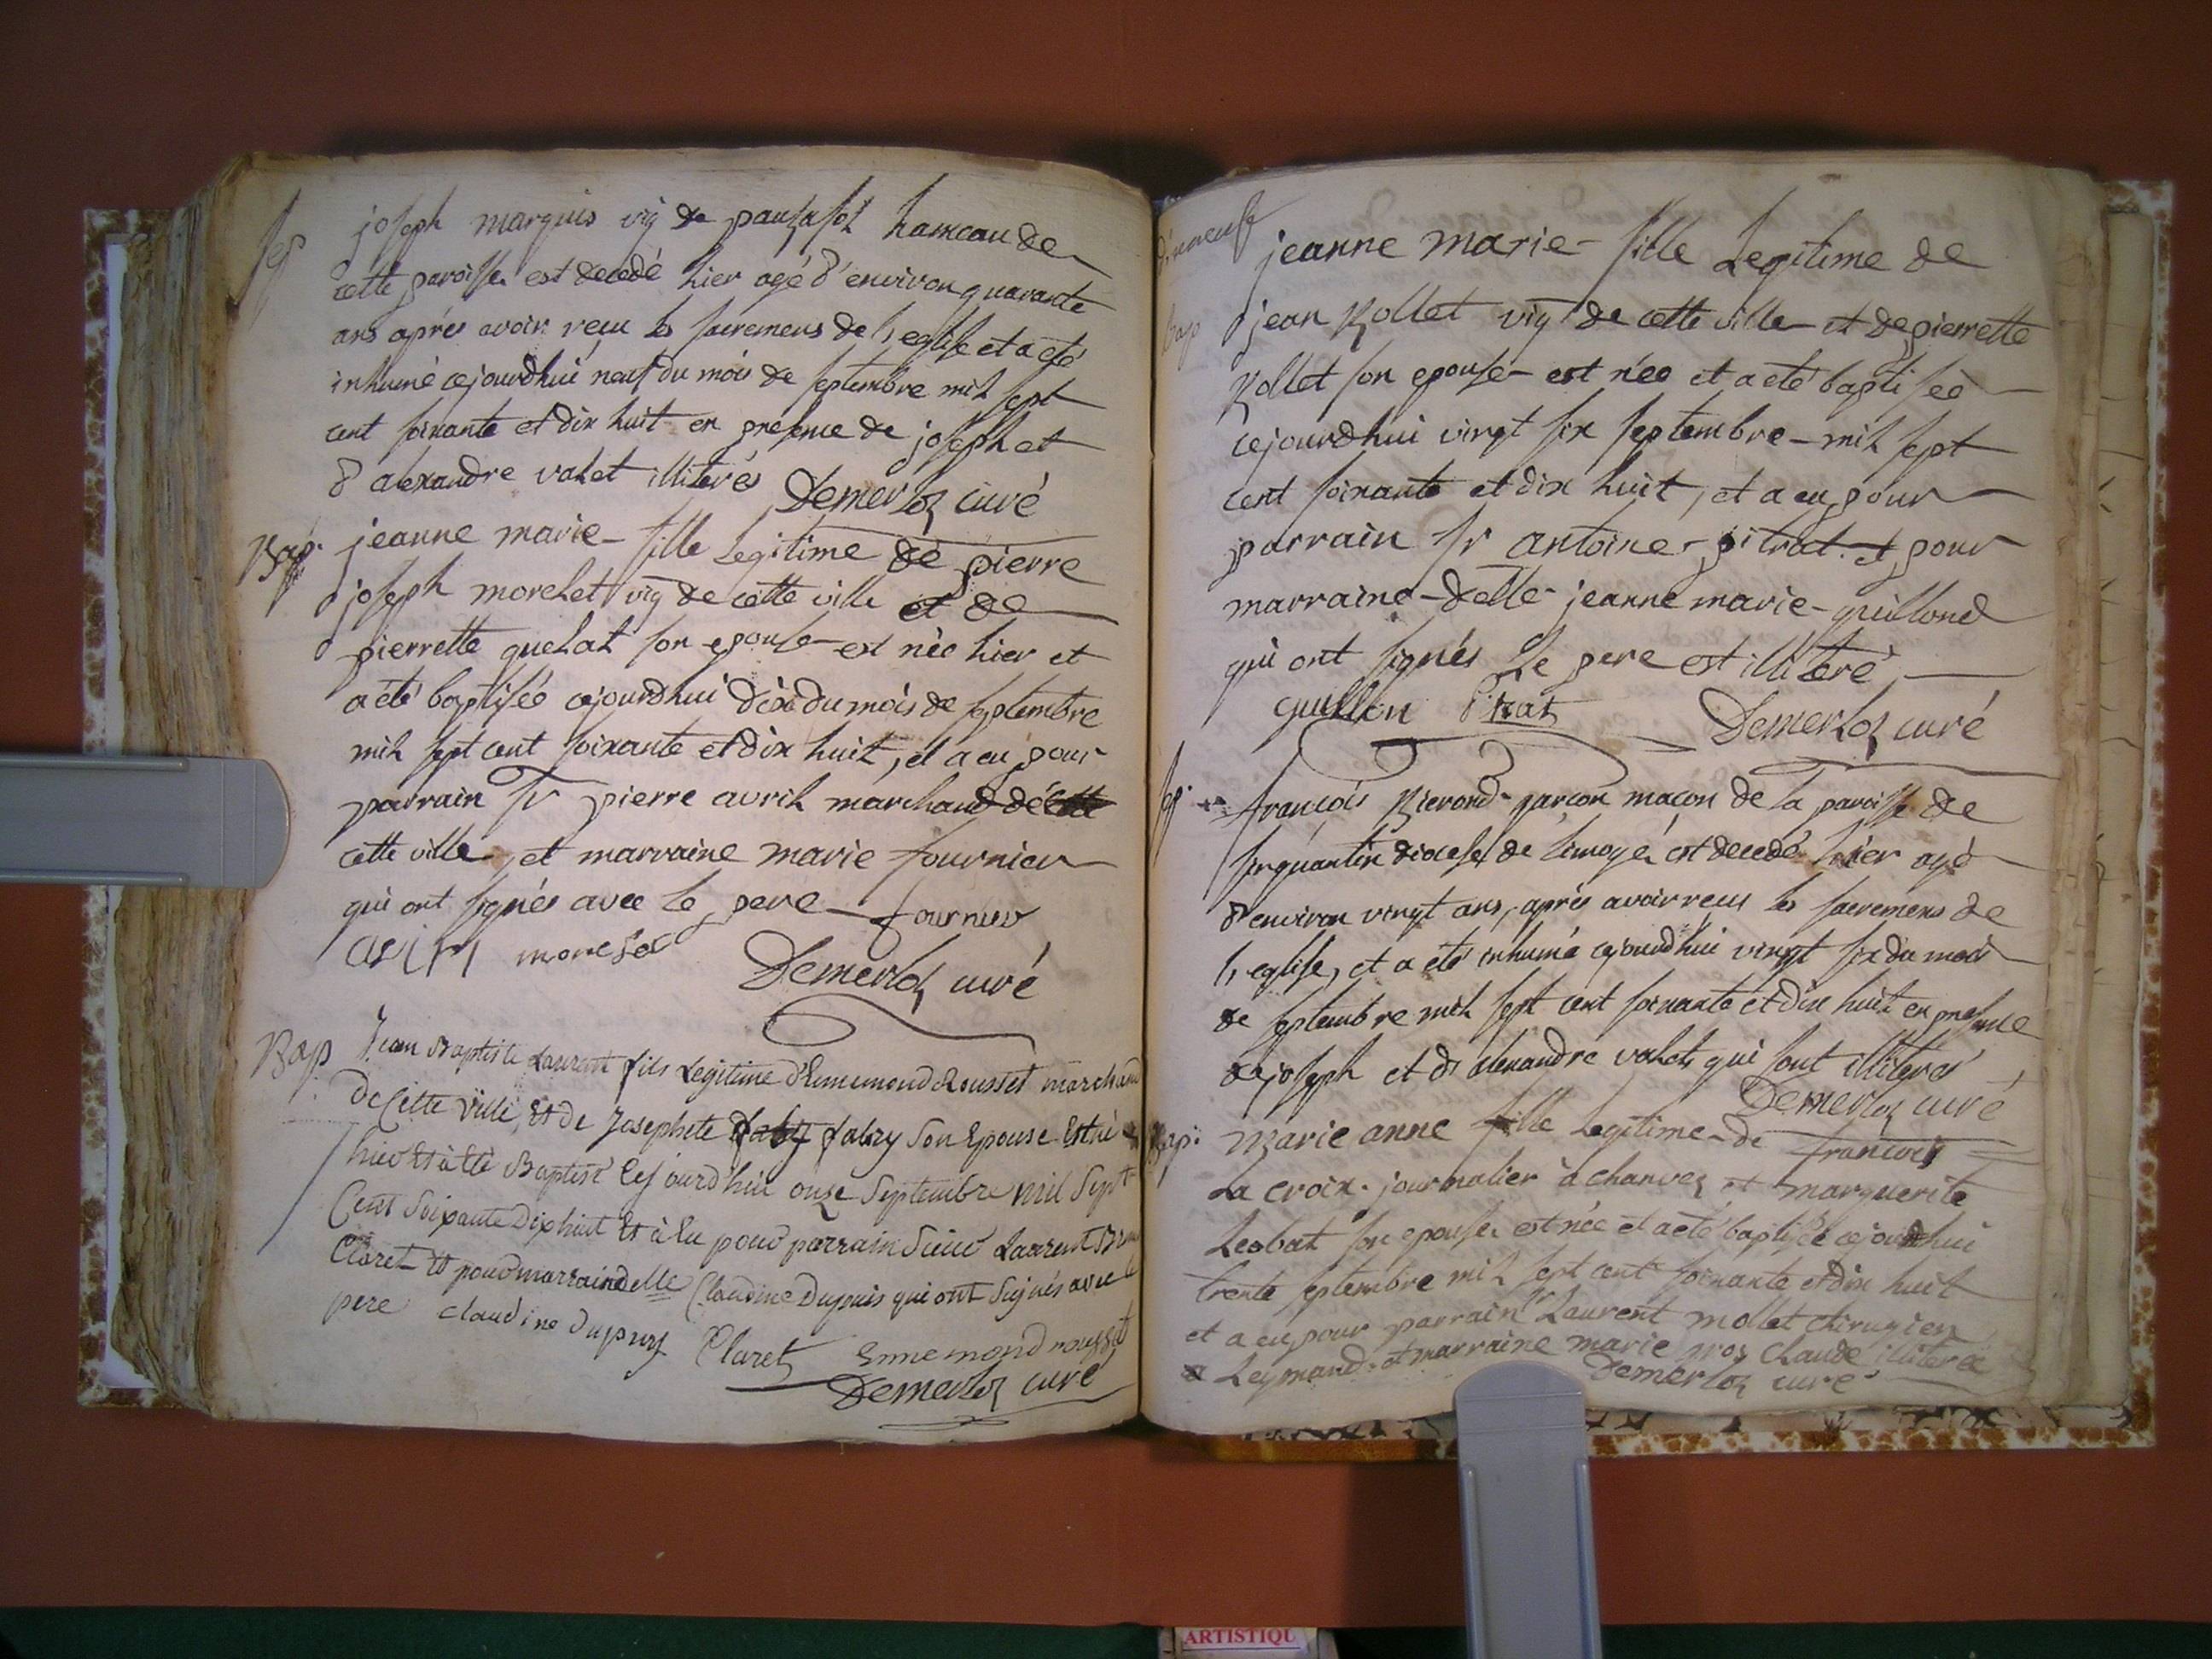 sep joseph marquis vig de hameau de
cette paroisse est decedé hier agé d'environ quarante
ans aprés avoir recu les sacremens de l, eglise et a eté
inhumé cejourdhui neuf du mois de septembre mil sept
cent soixante et dix huit en presence de joseph et
d alexandre valet illiterés Demerloz curé
Bap. jeanne marie fille legitime de pierre
joseph morelet vig de cette ville et de
pierrette son epouse est née hier et
a eté baptisée cejourdhui dix du mois de septembre
mil sept cent soixante et dix huit, et a eu pour
parrain sr pierre avril marchand de cette
cette ville, et marraine marie fournier
qui ont signés avec le pere fournier
avril
Demerloz curé
Bap Jean Baptiste Laurent fils Legitime d'Ennemond Rousset marchand
de Cette Ville, Et de Josephete fabry Son Epouse Est né
hier Et à Eté Baptisé Cejourd'hui onze Septembre mil Sept
Cent Soixante Dixhuit Et à Eu pour parrain Sieur Laurent
Claret Et pour marraine delle Claudine Dupuis qui ont Signés avec le
pere claudine dupuy Claret Ennemond rousset
Demerloz curé
jeanne marie fille Legitime de
bap jean Rollet vig de cette ville et de pierrette
Rollet son epouse est née et a eté baptisée
cejourdhui vingt six septembre mil sept
cent soixante et dix huit, et a eu pour
parrain sr antoine pitrat et pour
marraine delle jeanne marie guillond
qui ont signés le pere est illiteré
guillon Pitrat Demerloz curé
sep. francois garcon macon de la paroisse de
diocese de limoge est decedé hier agé
d'environ vingt ans, aprés avoir recu les sacremens de
l, eglise, et a eté inhumé cejourdhui vingt six du mois
de septembre mil sept cent soixante et dix huit en presence
de joseph et d alexandre valets qui sont illiterés
Demerloz curé
Bap. Marie anne fille legitime de francois
La croix journalier à chanvez et marguerite
Leobat son epouse est née et a eté baptisée cejourdhui
trente septembre mil sept cent soixante et dix huit
et a eu pour parrain Laurent mollet chirugien
a Leymand et marraine marie claude illiterée
Demerloz curé
ARTISTIQU